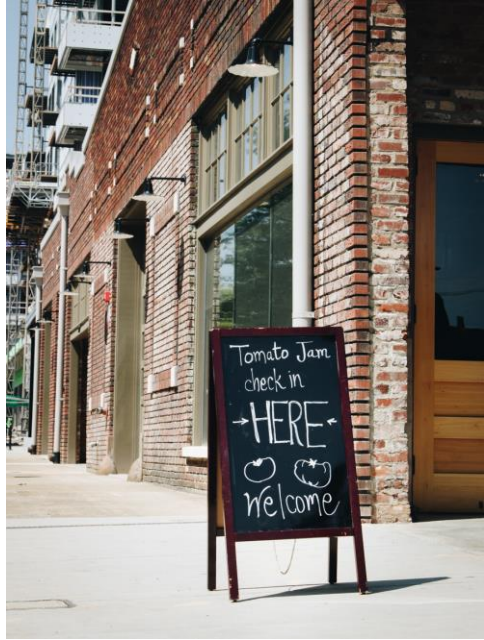 Tomato Jam
check in
→HERE←
Welcome